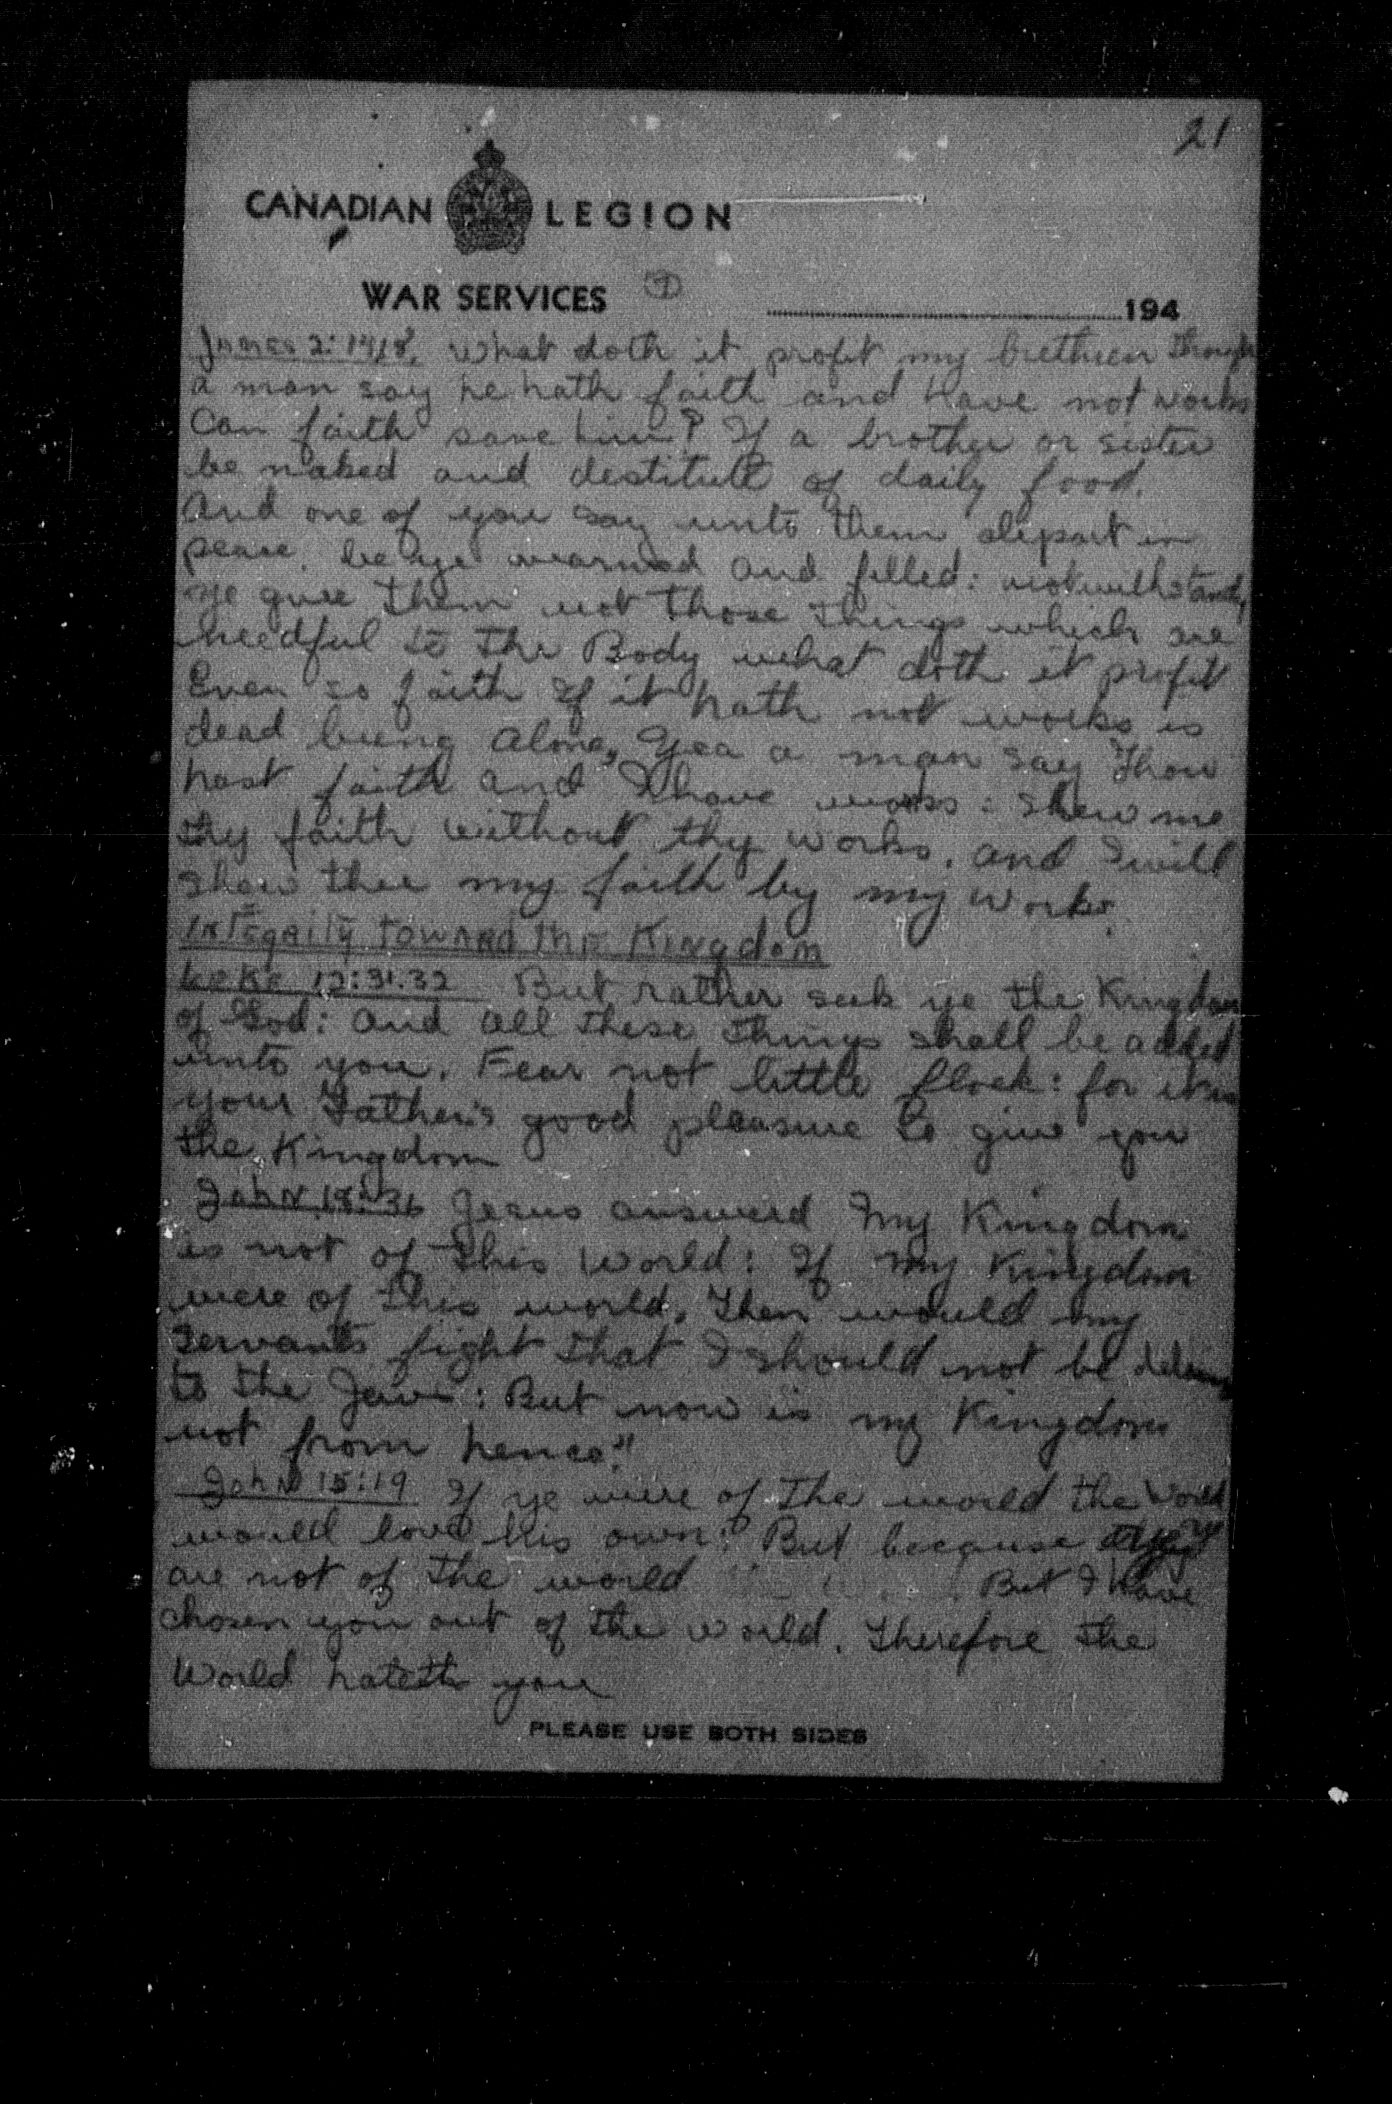 21
CANADIAN LEGION
WAR SERVICES
194
James 2:14,18. What doth it profit my brethren though
a man say he hath faith and have not works
Can faith save him? If a brother or sister
be naked and destitute of daily food.
And one of you say unto them depart in
peace. be ye warmed and filled: notwithstandg
ye give them not those things which are
needful to the Body what doth it profit
Even so faith if it hath not works is
dead being alone, Yea a man say Thou
hast faith and I have works: Shew me
thy faith without thy works. and I will
shew thee my faith by my works.
Integrity toward the Kingdom
Luke 12:31.32 But rather seek ye the Kingdom
of God: and all these things shall be added
unto you. Fear not little flock: for it is
your Father's good pleasure to give you
the Kingdom
John 18:36 Jesus answered My Kingdom
is not of this world: If my Kingdom
were of this world, Then would my
Servants fight that I should not be
to the Jews: But now is my Kingdom
not from hence."
John 15:19 If ye were of the world the World
would love his own: But because ye
are not of the world But I have
chosen you out of the world. Therefore the
World hateth you
PLEASE USE BOTH SIDES